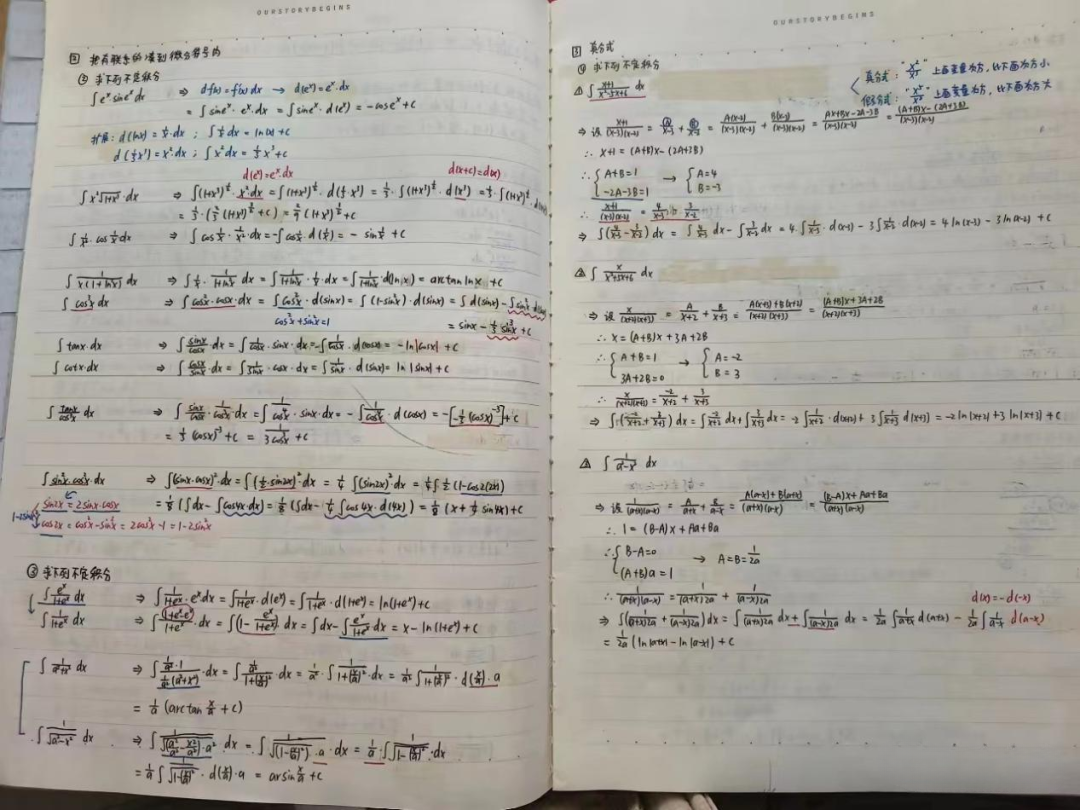 OURSTORYBEGINS
四 把有联系的凑到微分符号内
② 求下列不定积分
∫e^x·sine^x dx ⇒ df(x) = f'(x)dx → d(e^x)=e^x·dx
= ∫sine^x·e^x·dx = ∫sine^x·d(e^x) = -cose^x+C
扩展: d(lnx)=1/x·dx ; ∫1/x dx = ln|x|+C
d(1/3x³)=x²·dx ; ∫x²dx = 1/3x³+C
d(e^x)=e^x·dx d(x+c)=d(x)
∫x²√(1+x³)·dx ⇒ ∫(1+x³)^½·x²·dx = ∫(1+x³)^½·d(1/3·x³) = 1/3·∫(1+x³)^½·d(x³) = 1/3·∫(1+x³)^½·
= 1/3·(2/3(1+x³)^(3/2)+C) = 2/9(1+x³)^(3/2)+C
∫1/x²·cos1/x dx ⇒ ∫cos1/x·1/x²·dx = -∫cos1/x·d(1/x) = -sin1/x+C
∫1/(x(1+ln²x)) dx ⇒ ∫1/x·1/(1+ln²x) dx = ∫1/(1+ln²x)·1/x·dx = ∫1/(1+ln²x)·d(lnx) = arctan lnx+C
∫cos³x dx ⇒ ∫cos²x·cosx·dx = ∫cos²x·d(sinx) = ∫(1-sin²x)·d(sinx) = ∫d(sinx) - ∫sin²x d(sinx)
cos²x+sin²x=1 = sinx - 1/3 sin³x+C
∫tanx·dx ⇒ ∫sinx/cosx·dx = ∫1/cosx·sinx·dx = -∫1/cosx·d(cosx) = -ln|cosx|+C
∫cotx·dx ⇒ ∫cosx/sinx·dx = ∫1/sinx·cosx·dx = ∫1/sinx·d(sinx) = ln|sinx|+C
∫tanx/cos³x dx ⇒ ∫sinx/cosx·1/cos³x·dx = ∫1/cos⁴x·sinx·dx = -∫1/cos⁴x·d(cosx) = -[-1/3(cosx)^-3]+C
= 1/3(cosx)^-3+C = 1/(3cos³x)+C
∫sin²x·cos²x·dx ⇒ ∫(sinx·cosx)²·dx = ∫(1/2·sin2x)²dx = 1/4∫(sin2x)²dx = 1/4∫1/2(1-cos2(2x))
sin2x = 2sinx·cosx = 1/8(∫dx-∫cos4x·dx) = 1/8(∫dx-1/4∫cos4x·d(4x)) = 1/8(x+1/4sin4x)+C
cos2x = cos²x-sin²x = 2cos²x-1 = 1-2sin²x
③ 求下列不定积分
∫e^x/(1+e^x) dx ⇒ ∫1/(1+e^x)·e^x dx = ∫1/(1+e^x)·d(e^x) = ∫1/(1+e^x)·d(1+e^x) = ln(1+e^x)+C
∫1/(1+e^x) dx ⇒ ∫(1+e^x-e^x)/(1+e^x)·dx = ∫(1-e^x/(1+e^x)) dx = ∫dx-∫e^x/(1+e^x) dx = x-ln(1+e^x)+C
∫1/(a²+x²) dx ⇒ ∫(1/a²·1)/(1/a²(a²+x²))·dx = ∫(1/a²)/(1+(x/a)²)·dx = 1/a²·∫1/(1+(x/a)²)·dx = 1/a²∫1/(1+(x/a)²)·d(x/a)·a
= 1/a(arctan x/a+C)
∫1/√(a²-x²) dx ⇒ ∫1/√((a²/a²-x²/a²)·a²) dx = ∫1/(√(1-(x/a)²)·a)·dx = 1/a·∫1/√(1-(x/a)²)·dx
= 1/a∫1/√(1-(x/a)²)·d(x/a)·a = arsin x/a+C
OURSTORYBEGINS
五 真分式
④ 求下列不定积分
真分式: "x²/x³" 上面变量次方, 比下面次方小
假分式: "x³/x²" 上面变量次方, 比下面次方大
△ ∫(x+1)/(x²-5x+6) dx
⇒ 设 (x+1)/((x-3)(x-2)) = A/(x-3) + B/(x-2) = A(x-2)/((x-3)(x-2)) + B(x-3)/((x-3)(x-2)) = (Ax+Bx-2A-3B)/((x-3)(x-2)) = ((A+B)x-(2A+3B))/((x-3)(x-2))
∴ x+1 = (A+B)x-(2A+3B)
∴ { A+B=1 → { A=4
-2A-3B=1 B=-3
∴ (x+1)/((x-3)(x-2)) = 4/(x-3) 3/(x-2)
⇒ ∫(4/(x-3)-3/(x-2)) dx = ∫4/(x-3) dx-∫3/(x-2) dx = 4·∫1/(x-3)·d(x-3)-3∫1/(x-2)·d(x-2) = 4ln(x-3)-3ln(x-2)+C
△ ∫x/(x²+5x+6) dx
⇒ 设 x/((x+2)(x+3)) = A/(x+2) + B/(x+3) = (A(x+3)+B(x+2))/((x+2)(x+3)) = ((A+B)x+3A+2B)/((x+2)(x+3))
∴ x = (A+B)x+3A+2B
∴ { A+B=1 → { A=-2
3A+2B=0 B=3
∴ x/((x+2)(x+3)) = -2/(x+2) + 3/(x+3)
⇒ ∫(-2/(x+2)+3/(x+3)) dx = ∫-2/(x+2) dx+∫3/(x+3) dx = -2∫1/(x+2)·d(x+2)+3∫1/(x+3) d(x+3) = -2ln(x+2)+3ln(x+3)+C
△ ∫1/(a²-x²) dx
⇒ 设 1/((a+x)(a-x)) = A/(a+x) + B/(a-x) = (A(a-x)+B(a+x))/((a+x)(a-x)) = ((B-A)x+Aa+Ba)/((a+x)(a-x))
∴ 1 = (B-A)x+Aa+Ba
∴ { B-A=0 → A=B=1/2a
(A+B)a=1
∴ 1/((a+x)(a-x)) = 1/((a+x)2a) + 1/((a-x)2a)
d(x)=-d(-x)
⇒ ∫(1/((a+x)2a)+1/((a-x)2a)) dx = ∫1/((a+x)2a) dx+∫1/((a-x)2a) dx = 1/2a∫1/(a+x) d(a+x)-1/2a∫1/(a-x) d(a-x)
= 1/2a(ln|a+x|-ln|a-x|)+C